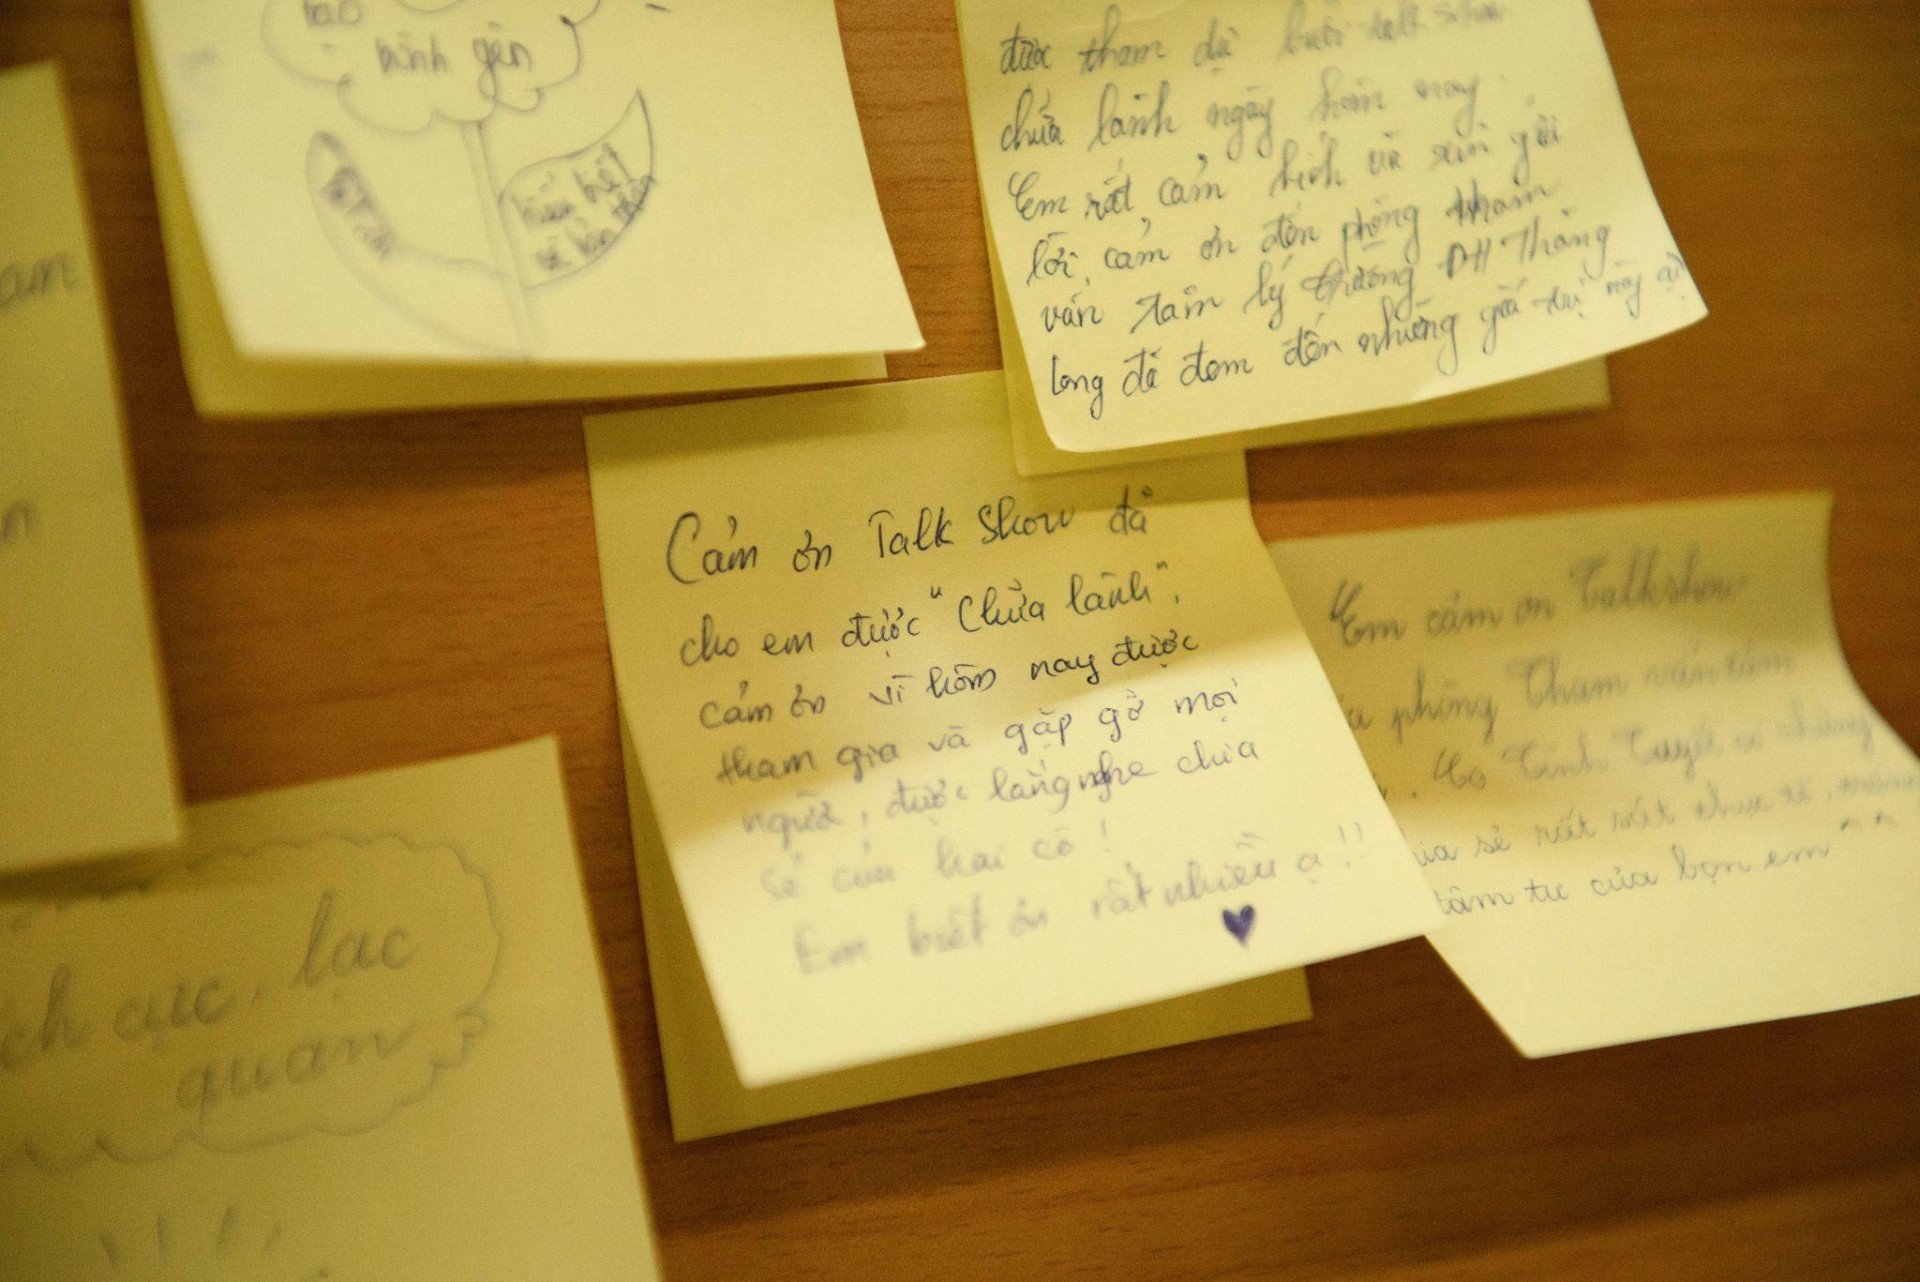 bình yên
hiểu hết
về bản thân
được tham dự buổi talk show
chữa lành ngày hôm nay.
Em rất cảm kích và xin gửi
lời cảm ơn đến phòng tham
vấn tâm lý trường ĐH Thăng
long đã đem đến những giá trị này ạ
Cảm ơn Talk Show đã
cho em được "Chữa lành",
cảm ơn vì hôm nay được
tham gia và gặp gỡ mọi
người, được lắng nghe chia
sẻ của hai cô!
Em biết ơn rất nhiều ạ!!
Em cảm ơn Talkshow
phòng Tham vấn tâm
sẻ rất rất thực tế,
tâm tư của bọn em ^^
ch cực, lạc
quan